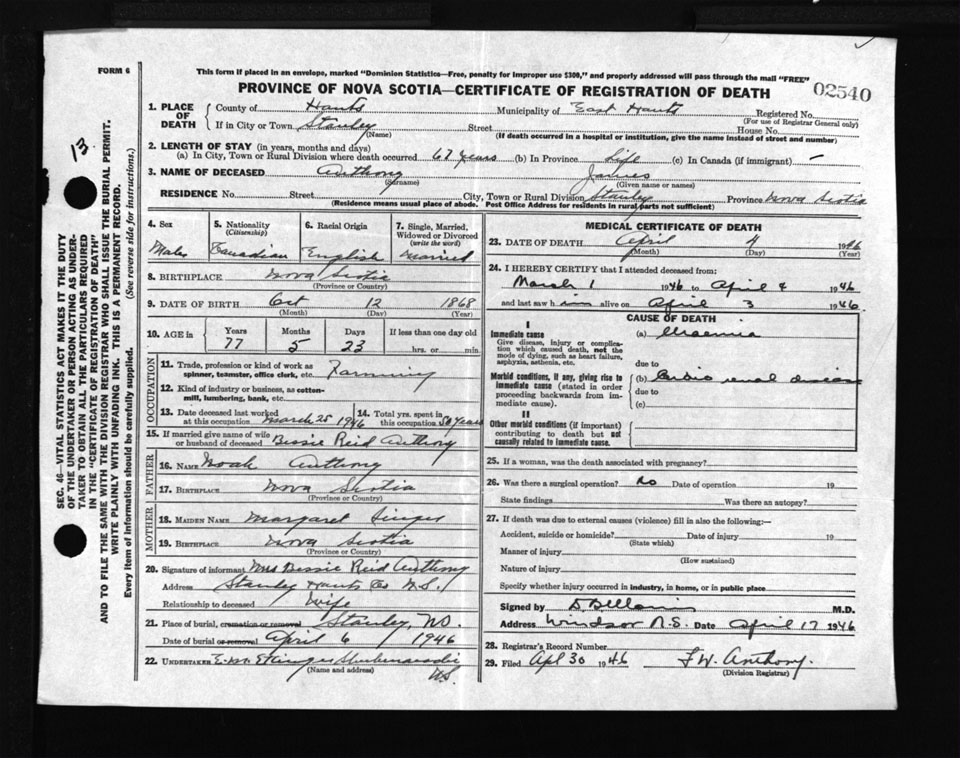 FORM 6
This form if placed in an envelope, marked "Dominion Statistics—Free, penalty for improper use $300," and properly addressed will pass through the mail "FREE"
PROVINCE OF NOVA SCOTIA—CERTIFICATE OF REGISTRATION OF DEATH
02540
13
SEC. 46—VITAL STATISTICS ACT MAKES IT THE DUTY
OF THE UNDERTAKER OR PERSON ACTING AS UNDER-
TAKER TO OBTAIN ALL THE PARTICULARS REQUIRED
IN THE "CERTIFICATE OF REGISTRATION OF DEATH"
AND TO FILE THE SAME WITH THE DIVISION REGISTRAR WHO SHALL ISSUE THE BURIAL PERMIT.
WRITE PLAINLY WITH UNFADING INK. THIS IS A PERMANENT RECORD.
Every item of information should be carefully supplied. (See reverse side for instructions.)
1. PLACE OF DEATH
County of Hants Municipality of East Hants Registered No.
(For use of Registrar General only)
If in City or Town Stanley Street House No.
(Name) (If death occurred in a hospital or institution, give the name instead of street and number)
2. LENGTH OF STAY (in years, months and days)
(a) In City, Town or Rural Division where death occurred 67 years (b) In Province Life (c) In Canada (if immigrant) —
3. NAME OF DECEASED Anthony James
(Surname) (Given name or names)
RESIDENCE No. Street City, Town or Rural Division Stanley Province Nova Scotia
(Residence means usual place of abode. Post Office Address for residents in rural parts not sufficient)
4. Sex 5. Nationality (Citizenship) 6. Racial Origin 7. Single, Married, Widowed or Divorced (write the word)
Male Canadian English Married
8. BIRTHPLACE Nova Scotia
(Province or Country)
9. DATE OF BIRTH Oct 12 1868
(Month) (Day) (Year)
10. AGE in Years Months Days If less than one day old
77 5 23 hrs. or min.
OCCUPATION
11. Trade, profession or kind of work as spinner, teamster, office clerk, etc. Farming
12. Kind of industry or business, as cotton-mill, lumbering, bank, etc.
13. Date deceased last worked at this occupation March 25 1946
14. Total yrs. spent in this occupation 50 years
15. If married give name of wife or husband of deceased Bessie Reid Anthony
FATHER
16. NAME Noah Anthony
17. BIRTHPLACE Nova Scotia
(Province or Country)
MOTHER
18. MAIDEN NAME Margaret Singer
19. BIRTHPLACE Nova Scotia
(Province or Country)
20. Signature of informant Mrs Bessie Reid Anthony
Address Stanley Hants Co N.S.
Relationship to deceased Wife
21. Place of burial, cremation or removal Stanley, N.S.
Date of burial or removal April 6 1946
22. UNDERTAKER Shubenacadie
(Name and address) N.S.
MEDICAL CERTIFICATE OF DEATH
23. DATE OF DEATH April 4 1946
(Month) (Day) (Year)
24. I HEREBY CERTIFY that I attended deceased from:
March 1 1946 to April 4 1946
and last saw him alive on April 3 1946
CAUSE OF DEATH
I
Immediate cause (a) Uraemia
Give disease, injury or complication which caused death, not the mode of dying, such as heart failure, asphyxia, asthenia, etc.
due to
Morbid conditions, if any, giving rise to immediate cause (stated in order proceeding backwards from immediate cause).
(b) Cardio renal disease
due to
(c)
II
Other morbid conditions (if important) contributing to death but not causally related to immediate cause.
25. If a woman, was the death associated with pregnancy?
26. Was there a surgical operation? No Date of operation 19
State findings Was there an autopsy?
27. If death was due to external causes (violence) fill in also the following:—
Accident, suicide or homicide? Date of injury 19
(State which)
Manner of injury
(How sustained)
Nature of injury
Specify whether injury occurred in industry, in home, or in public place
Signed by M.D.
Address Windsor N.S. Date April 17 1946
28. Registrar's Record Number
29. Filed Apl 30 1946 F.W. Anthony.
(Division Registrar)